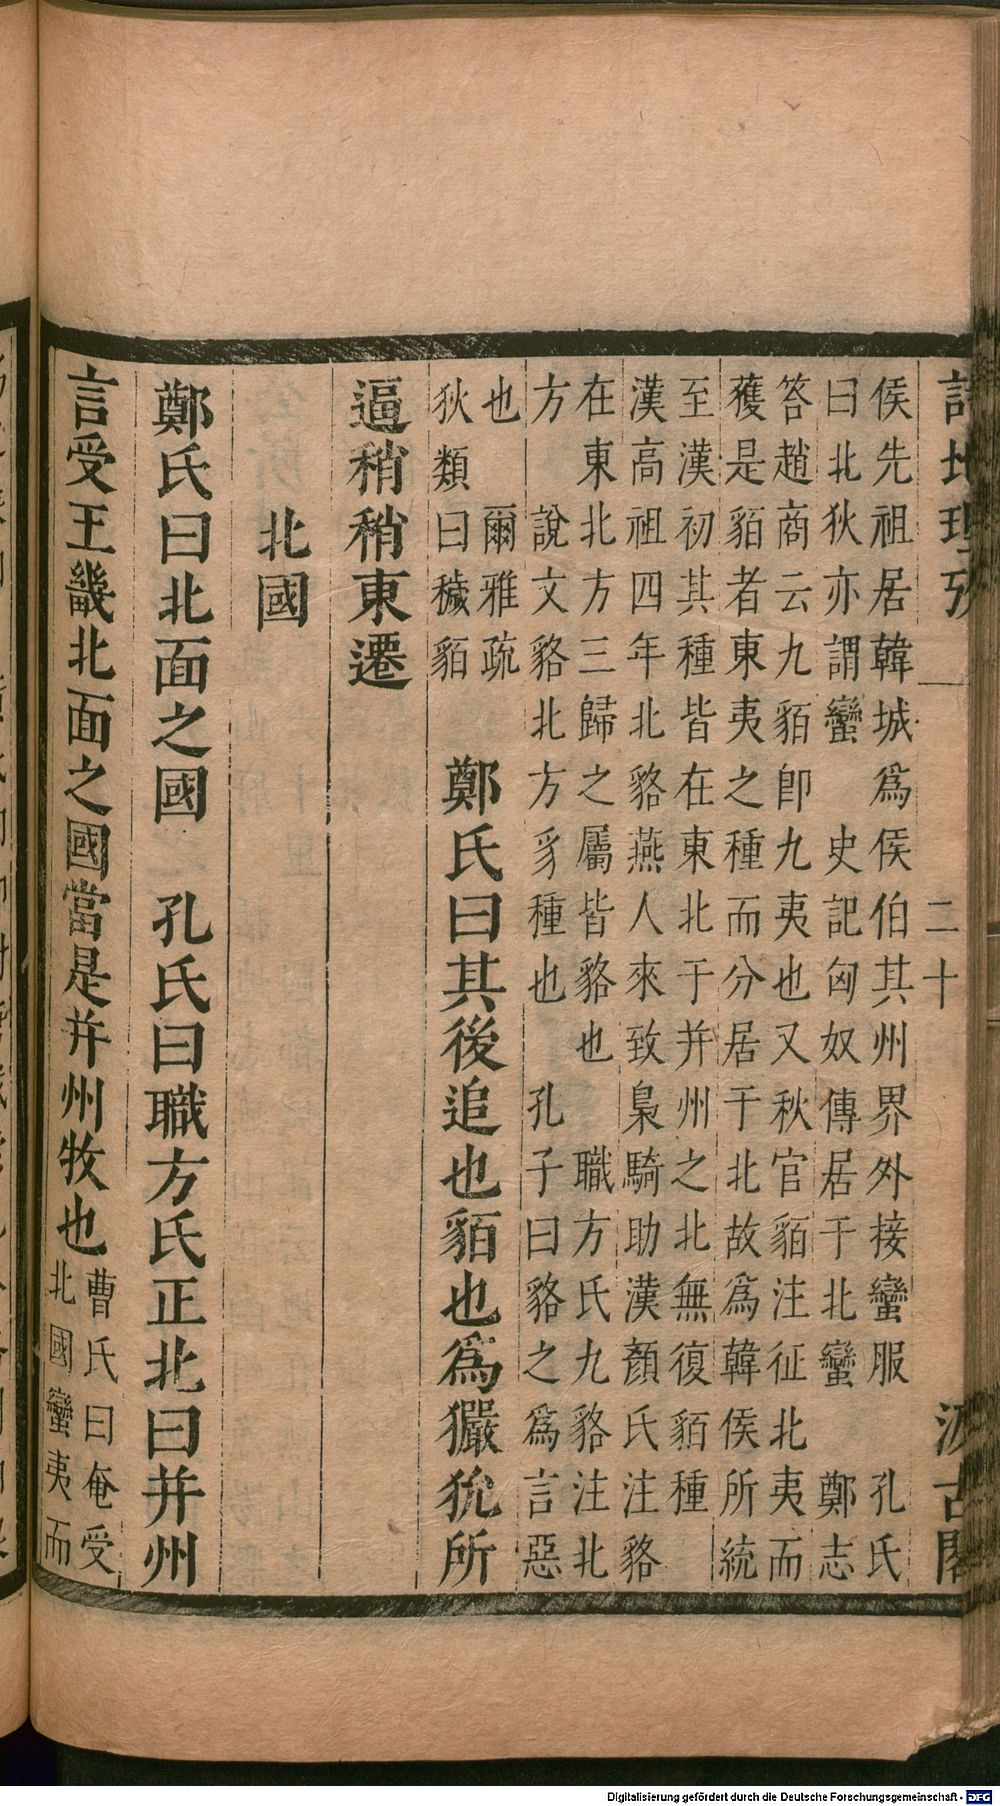 詩地理攷 一 二十 汲古閣
侯先祖居韓城爲侯伯其州界外接蠻服 孔氏
曰北狄亦謂蠻 史記匈奴傳居于北蠻 鄭志
答趙商云九貊卽九夷也又秋官貊注征北夷而
獲是貊者東夷之種而分居于北故爲韓侯所統
至漢初其種皆在東北于并州之北無復貊種
漢高祖四年北貉燕人來致梟騎助漢顏氏注貉
在東北方三歸之屬皆貉也 職方氏九貉注北
方 說文貉北方豸種也 孔子曰貉之爲言惡
也 爾雅疏
狄類曰穢貊
鄭氏曰其後追也貊也爲玁狁所
逼稍稍東遷
北國
鄭氏曰北面之國 孔氏曰職方氏正北曰并州
言受王畿北面之國當是并州牧也
曹氏曰奄受
北國蠻夷而
Digitalisierung gefördert durch die Deutsche Forschungsgemeinschaft - DFG